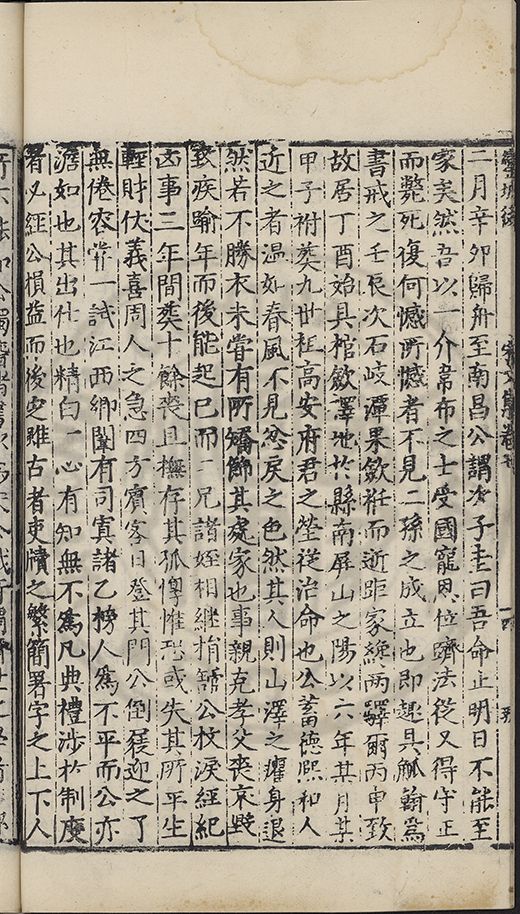 二月辛夘歸舟至南昌公謂次子圭曰吾命止明日不能至
家矣然吾以一介韋布之士受國寵恩位躋法從又得守正
而斃死復何憾所憾者不見二孫之成立也即趣具觚翰爲
書戒之壬辰次石岐潭果斂衽而逝距家纔兩驛爾丙申致
故居丁酉始具棺斂譯地於縣南屏山之陽以六年其月某
甲子祔葬九世祖高安府君之塋從治命也公蓄德熙和人
近之者温如春風不見忿戾之色然其人則山澤之癯身退
然若不勝衣未甞有所矯飾其處家也事親克孝父喪哀毀
致疾踰年而後能起已而二兄諸姪相繼捐舘公抆淚經紀
凶事三年間葬十餘喪且撫存其孤惸惟恐或失其所平生
輕財伏義喜周人之急四方賓客日登其門公倒屣迎之了
無倦容甞一試江西鄉闈有司寘諸乙榜人爲不平而公亦
澹如也其出仕也精白一心有知無不爲凡典禮渉於制度
者必經公損益而後定雖古者吏牘之繁簡署字之上下人